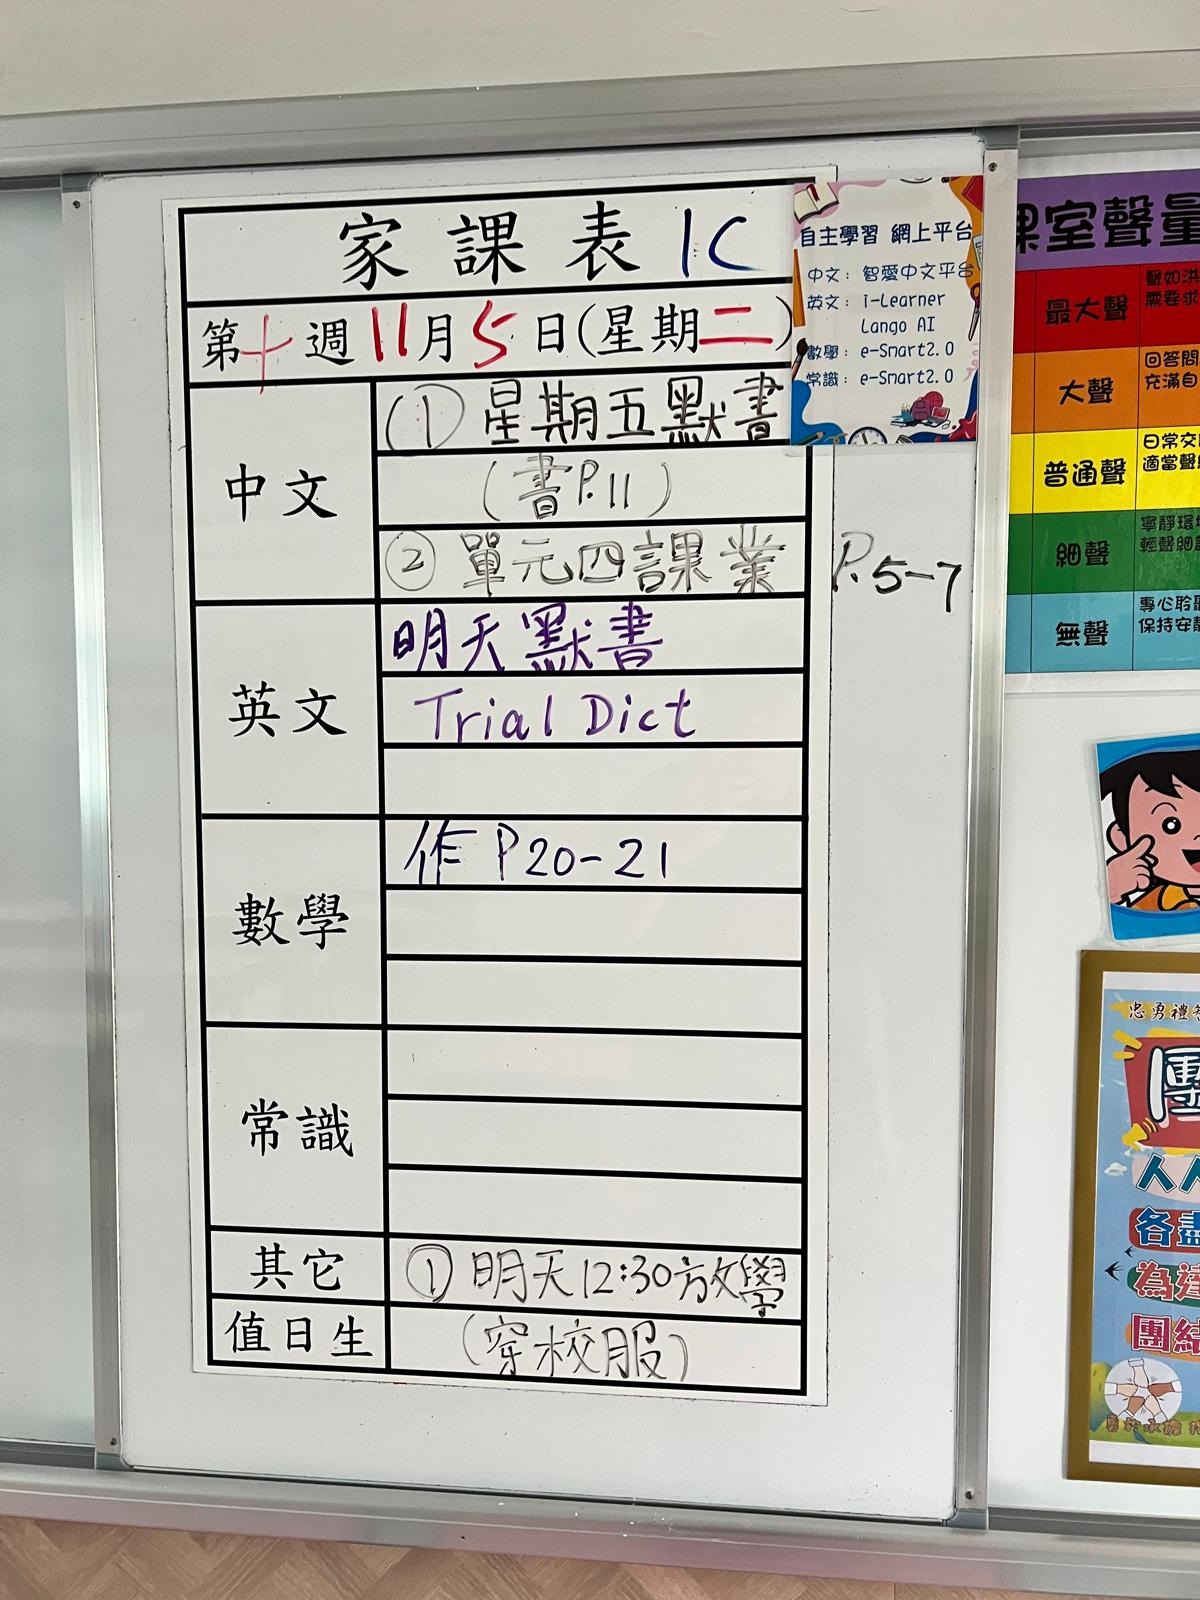 家課表 1C
第十週 11月5日(星期二)
中文
(1) 星期五默書
(書P.11)
② 單元四課業 P.5-7
英文
明天默書
Trial Dict
數學
作 P20-21
常識
其它
① 明天12:30放學
值日生
(穿校服)
自主學習 網上平台
中文: 智愛中文平台
英文: i-Learner
Lango AI
數學: e-Smart2.0
常識: e-Smart2.0
課室聲量
最大聲
聲如洪
需要求
大聲
回答問
充滿自
普通聲
日常交
適當聲
細聲
寧靜環
輕聲細
無聲
專心聆
保持安靜
忠勇禮
團
人人
各盡
為達
團結